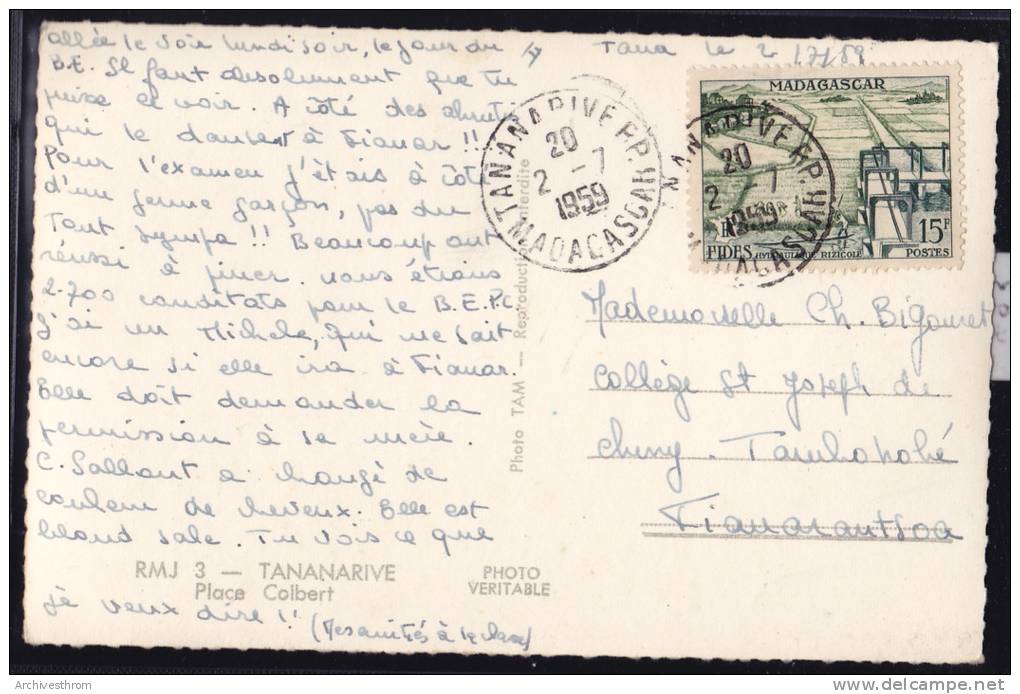 allée le voir lundi soir, le jour du
B.E. Il faut absolument que tu
puisse le voir. A côté des
qui le à Fianar !!
Pour l'examen j'étais à côté
d'un jeune garçon, pas du
tout sympa !! Beaucoup ont
réussi à nous étions
2.700 candidats pour le B.E.P.C.
J'ai vu Michèle, qui ne sait
encore si elle ira à Fianar.
Elle doit demander la
permission à sa mère.
C. Sallant a changé de
couleur de cheveux. Elle est
blond sale. Tu vois ce que
je veux dire !! (Mes amitiés à la classe)
RMJ 3 — TANANARIVE
Place Colbert
PHOTO
VERITABLE
Photo TAM — Reproduction interdite
Tana le 2/7/59
TANANARIVE R.P.
20
2 - 7
1959
MADAGASCAR
MADAGASCAR
TANANARIVE R.P.
20
2 - 7
1959
MADAGASCAR
15F
FIDES HYDRAULIQUE RIZICOLE POSTES
Mademoiselle Ch. Bigouret
Collège St Joseph de
Cluny - Tambohobé
Fianarantsoa
Archivesthrom
delcampe.net